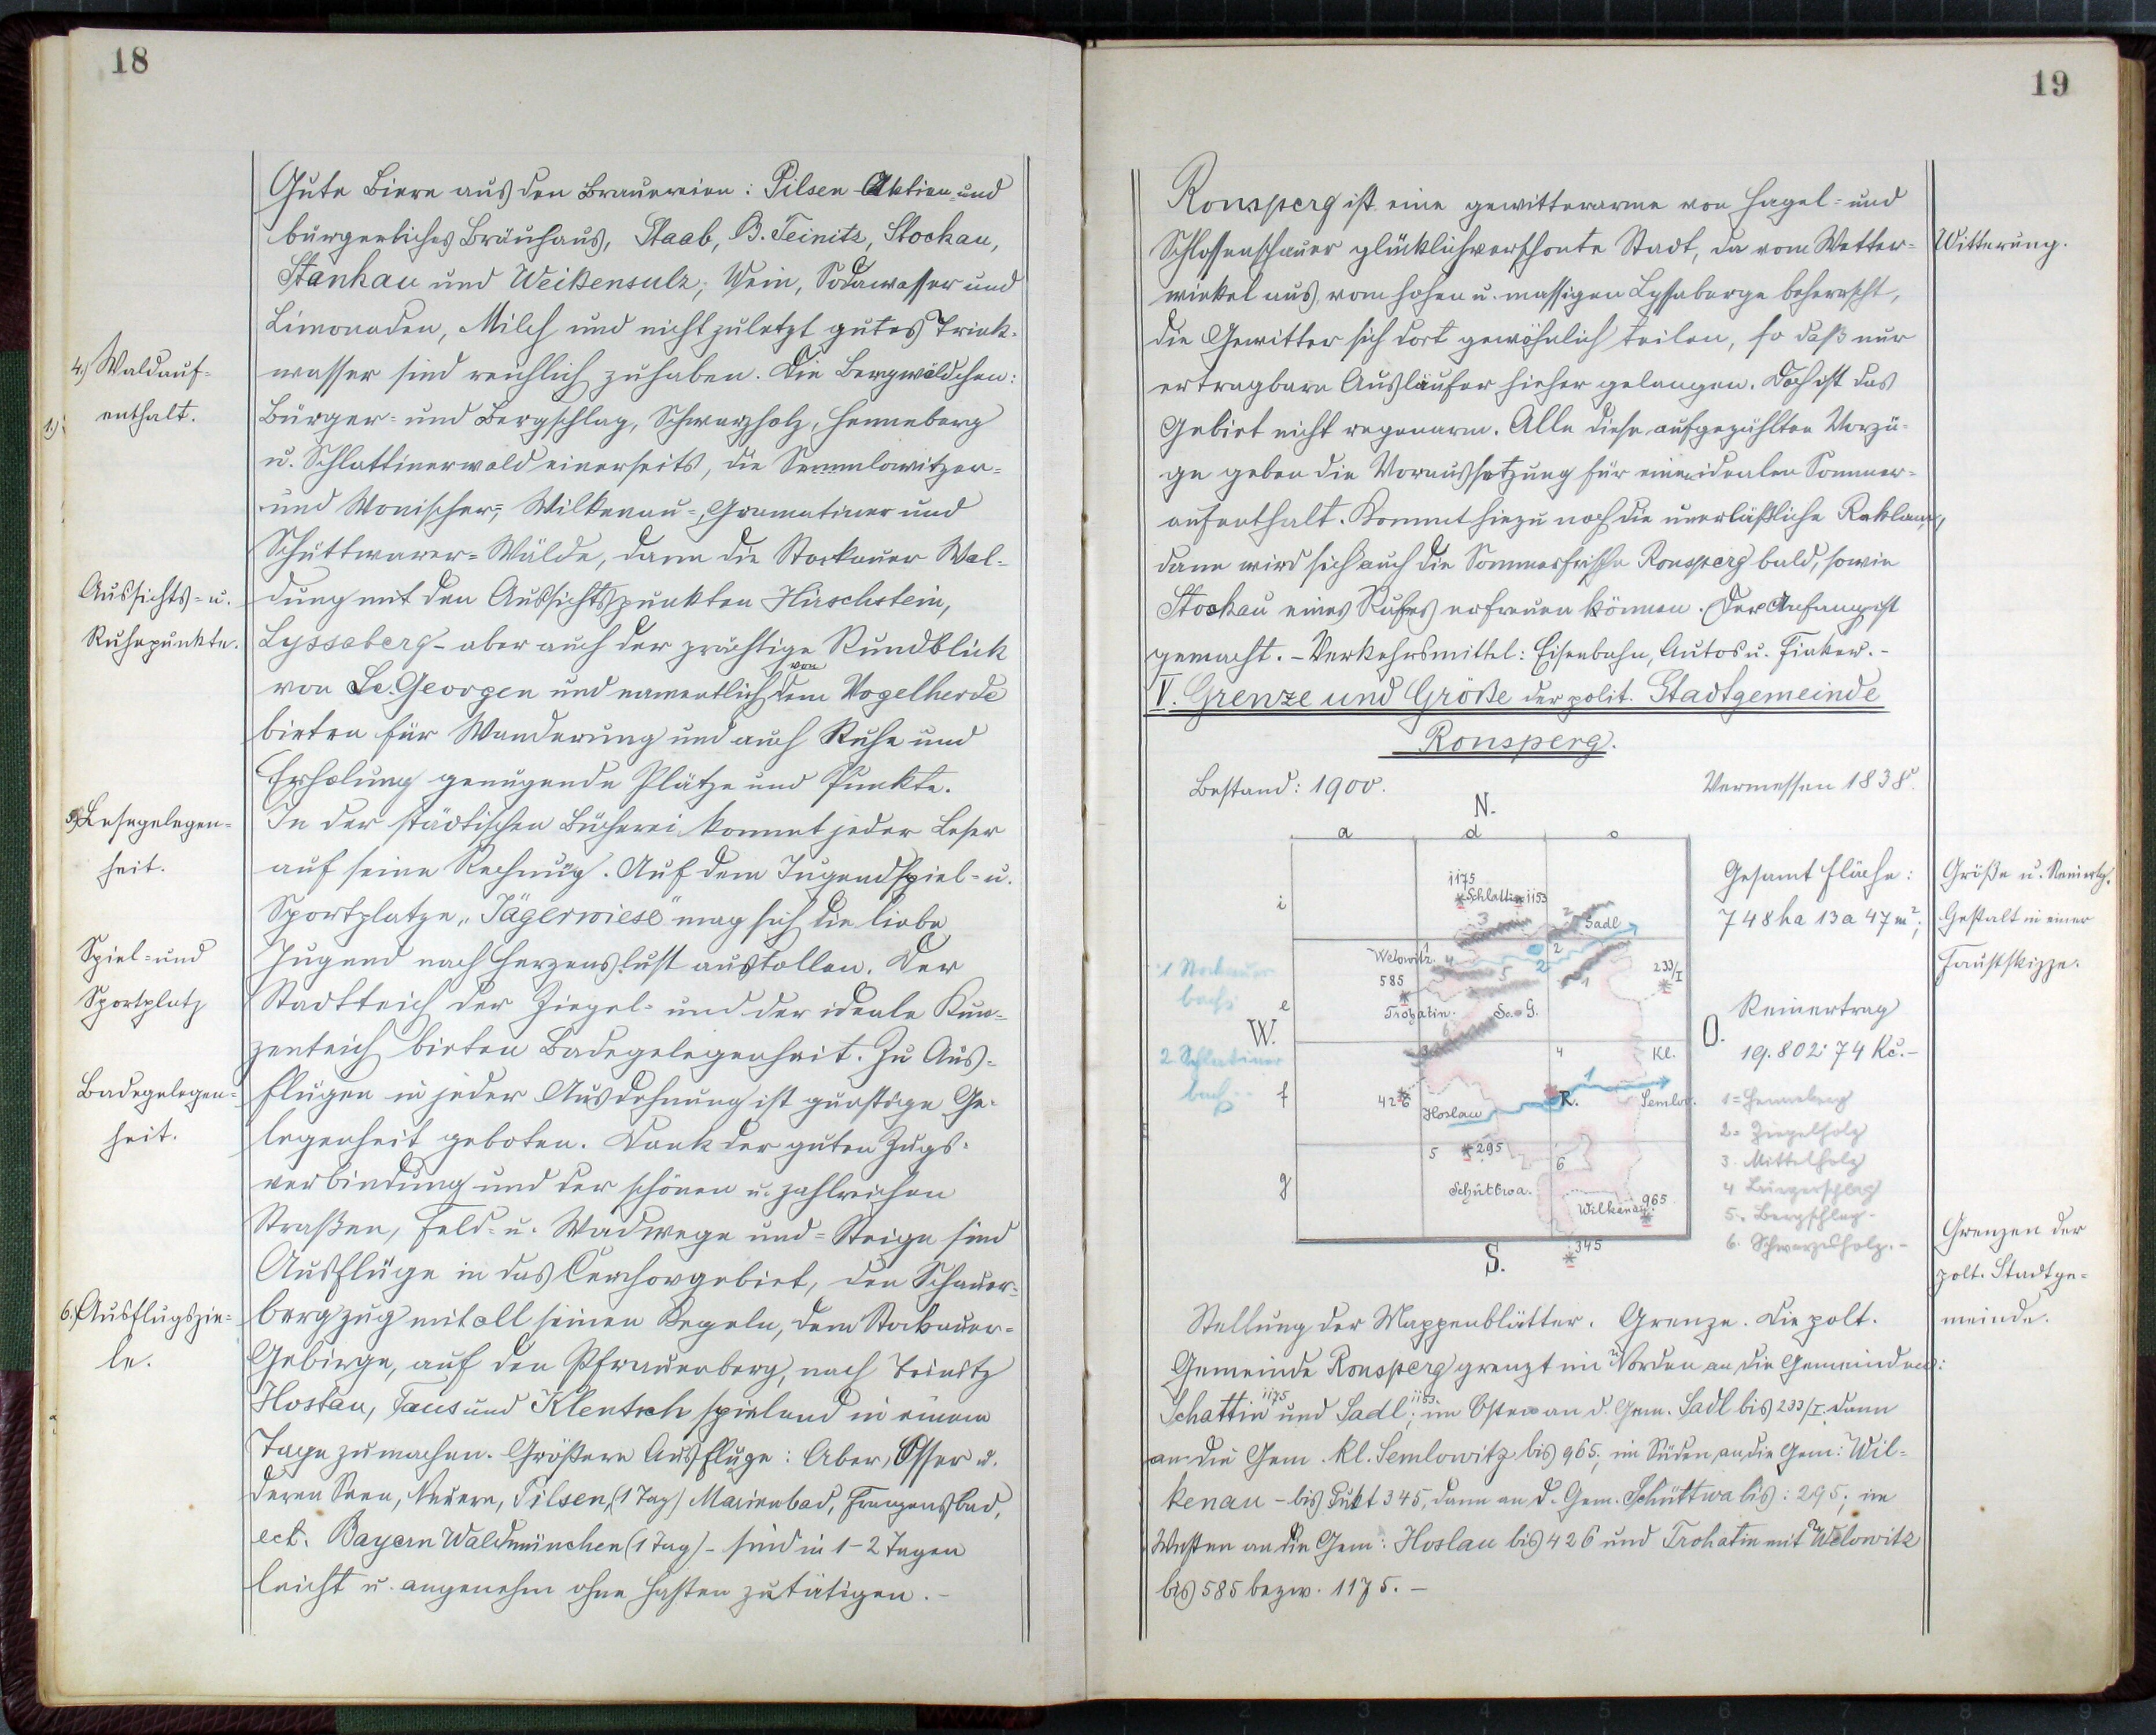 18
Gute Biere aus den Brauereien: Pilsen-Aktien- und
bürgerliches Bräuhaus, Staab, B. Teinitz, Stockau,
Stankau und Weißensulz; Wein, Sodawasser und
Limonaden, Milch und nicht zuletzt gutes Trink-
4.) Waldauf-
wasser sind reichlich zuhaben. Die Bergwäldchen:
1.)
enthalt.
Bürger- und Bergschlag, Schwarzholz, Henneberg
u. Schlattinerwald einerseits, die Semmlowitzer-
und Wonischer-, Wilkenau-, Gramatiner und
Schüttwarer-Wälde, dann die Stockauer Wal-
Aussichts- u.
dung mit den Aussichtspunkten Hirschstein,
Ruhepunkte.
Lyssaberg - aber auch der prächtige Rundblick
von Sc. Georgen und namentlich von dem Vogelherde
bieten für Wanderung und auch Ruhe und
Erholung genugende Plätze und Punkte.
5) Lesegelegen-
In der städtischen Bücherei kommt jeder Leser
heit.
auf seine Rechnug. Auf dem Jugendspiel- u.
Sportplatze „Jägerwiese" mag sich die liebe
Spiel- und
Jugend nach Herzenslust austollen. Der
Sportplatz
Stadtteich der Ziegel- und der ideale Kun-
zenteich bieten Badegelegenheit. Zu Aus-
Badegelegen-
flugen in jeder Ausdehnung ist gunstige Ge-
heit.
legenheit geboten. Dank der guten Zugs-
verbindung und der schönen u. zahlreichen
Straßen, Feld- u. Wadwege und -Steige sind
Ausflüge in das Cerchovgebiet, den Schauer-
6.) Ausflugszie-
bergzug mit all seinen Kegeln, dem Stockauer-
le.
Gebirge, auf den Pfrauenberg, nach Teinitz
Hostau, Taus und Klentsch spielend in einem
Tage zu machen. Größere Ausfluge: Aber, Osser u.
deren Seen, Neuern, Pilsen, (1 Tag) Marienbad, Franzensbad,
ect. Bayern Waldmünchen (1 Tag) - sind in 1-2 Tagen
leicht u. angenehm ohne Hasten zutätigen. -
19
Ronsperg ist eine gewitterarme von Hagel- und
Schlossenschauer glücklichverschonte Stadt, da vom Wetter-
Witterung.
winkel aus, vom hohen u. massigen Lyssaberge beherrscht,
die Gewitter sich dort gewöhnlich teilen, so daß nur
ertragbare Ausläufer hieher gelangen. Doch ist das
Gebiet nicht regenarm. Alle diese aufgezählten Vorzü-
ge geben die Voraussetzung für einen idealen Sommer-
aufenthalt. Kommt hiezu noch die unerläßliche Reklame,
dann wird sich auch die Sommerfrische Ronsperg bald, sowie
Stockau eines Rufes erfreuen können. Der Anfang ist
gemacht. - Verkehrsmittel: Eisenbahn, Autos u. Fiaker. -
V. Grenze und Größe der polit. Stadtgemeinde
Ronsperg.
Bestand: 1900.
Vermessen 1838.
N.
a d c
1175
Schlattin 1153
i
Gesamt Fläche:
Größe u. Reinertg.
748 ha 13 a 47 m²;
Gestalt in einer
Faustskizze.
3 2 Sadl
Welowitz. 4 2
585 5 2 1 233/I
1 Stockauer-
bach
e
Trohatin. Sc. G.
6
Reinertrag
19.802.74 Kč. -
W.
O.
3 4 Kl.
2 Schlatiner
bach
f
426 Hoslau R. 1 Semlov.
1 = Henneberg
2 = Ziegelholz
3. Mittelholz
4 Bürgerschlag
5. Bergschlag -
6. Schwarzholz. -
5 295 6
g
Schüttwa.
Wilkenau 965
345
S.
Grenzen der
polt. Stadtge-
meinde.
Stellung der Mappenblätter. Grenze. Die polt.
Gemeinde Ronsperg grenzt im Norden an die Gemeinden:
Schattin 1175 und Sadl 1153; im Osten an d. Gem. Sadl bis 233/I dann
an die Gem. Kl. Semlowitz bis 965; im Süden an die Gem: Wil-
kenau - bis Pukt 345, dann an d. Gem. Schüttwa bis: 295; im
Westen an die Gem: Hoslau bis 426 und Trohatin mit Welowitz
bis 585 bezw. 1175. -